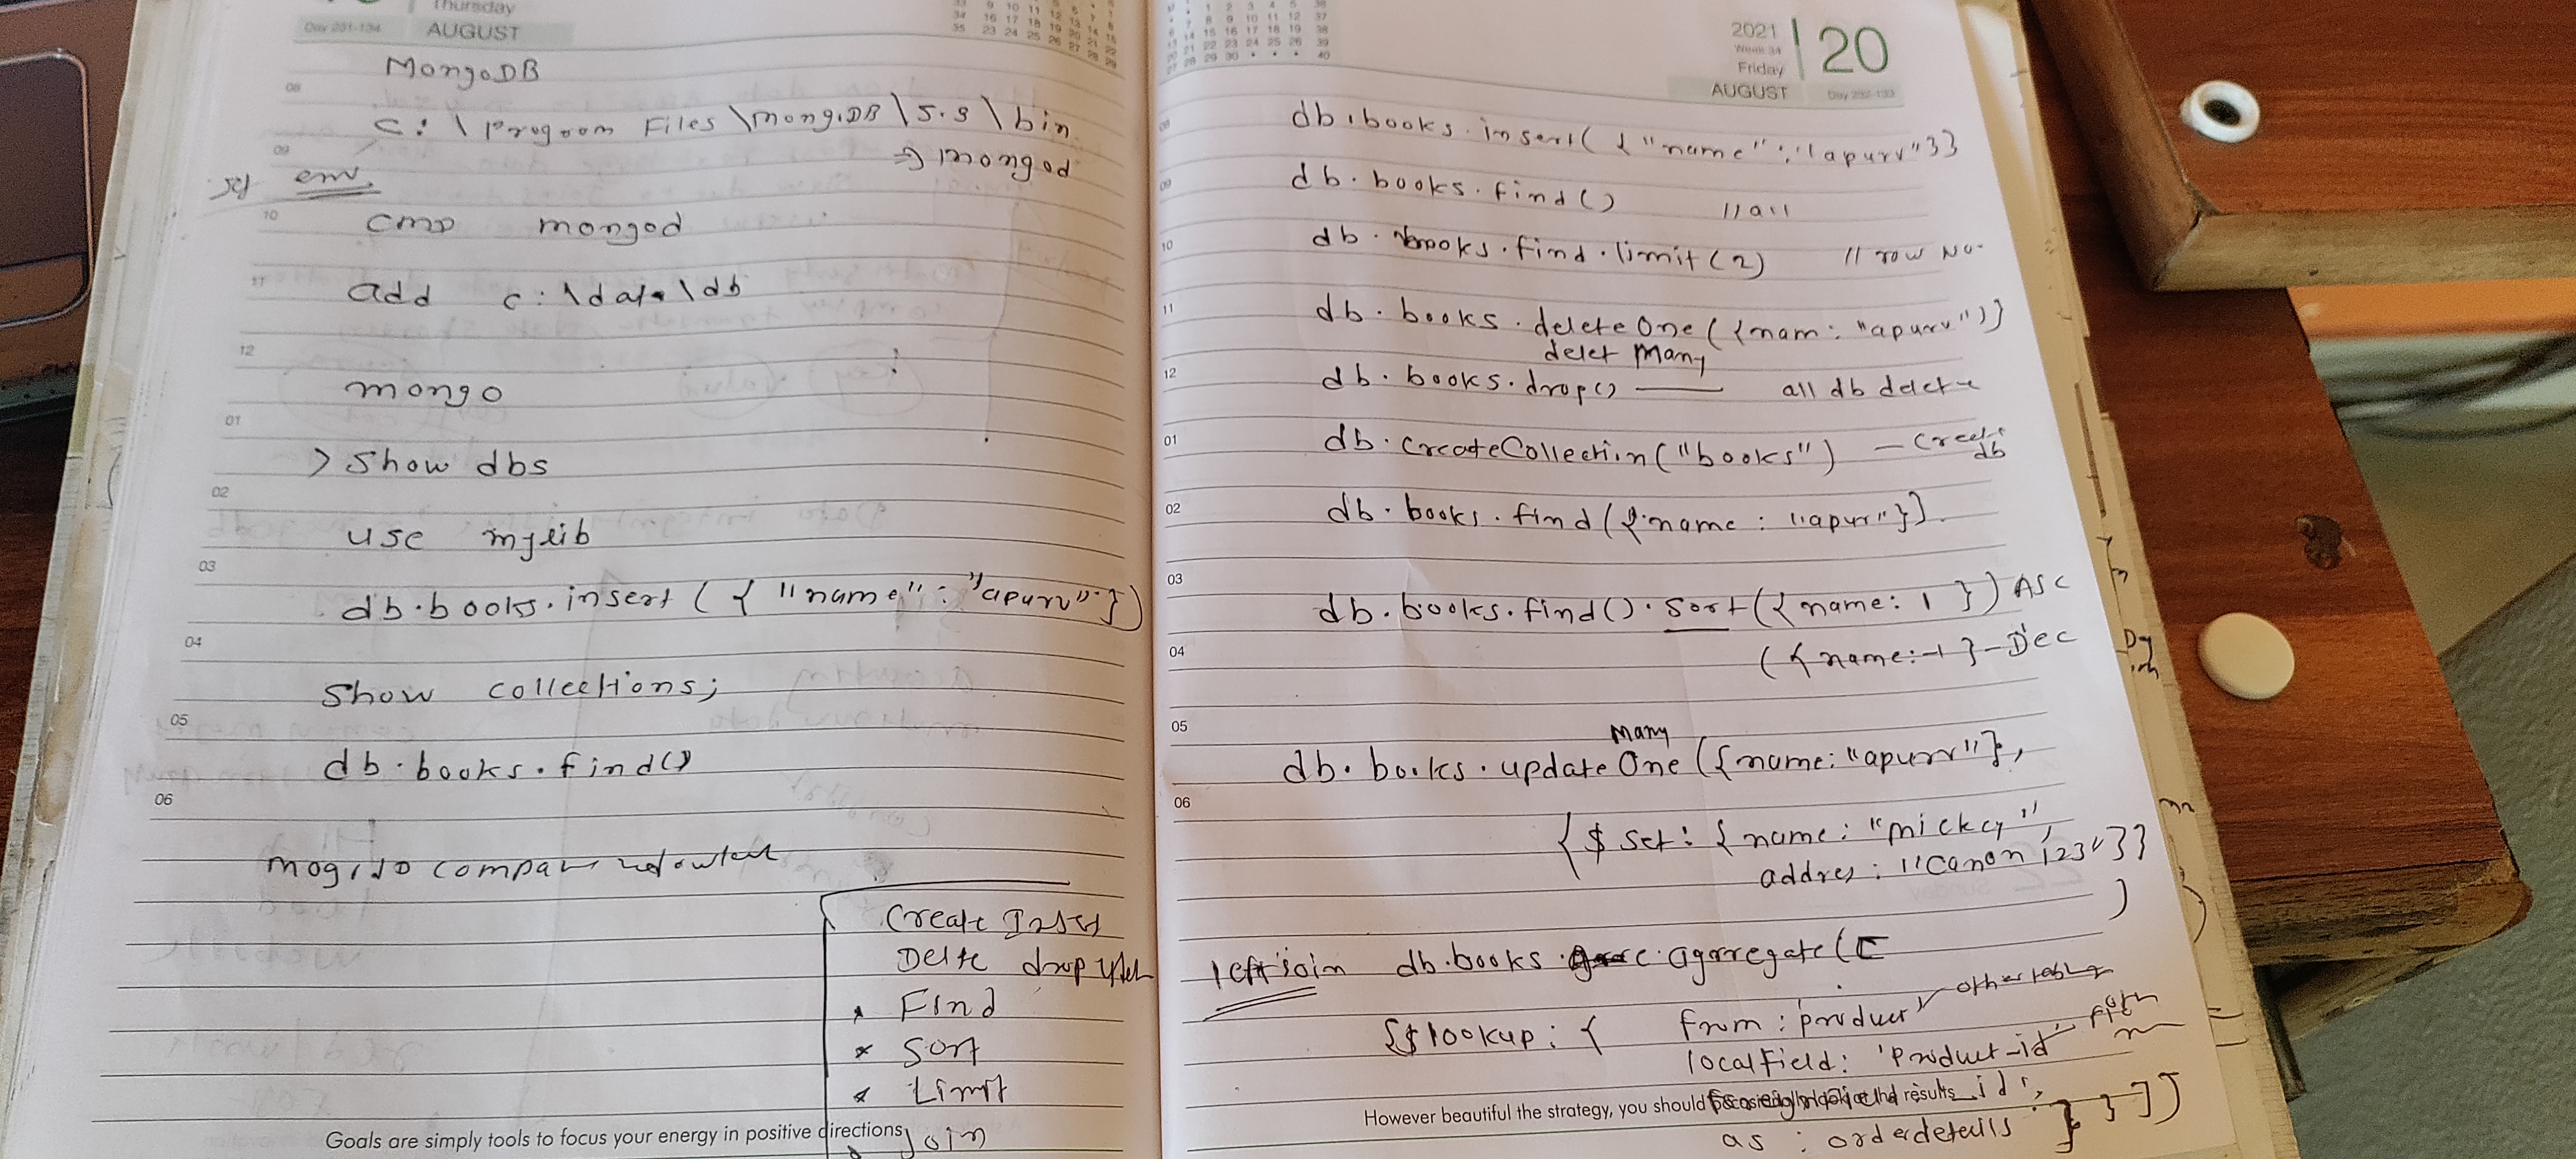 Thursday
Day 231-134 AUGUST
MongoDB
08
c:\Progrom Files\mongoDB\5.3\bin
09
=> mongod
set env
10
cmd mongod
11
add c:\data\db
12
mongo
01
> Show dbs
02
use mylib
03
db.books.insert({ "name" : "apurv" })
04
Show collections;
05
db.books.find()
06
Create Insert
Delte drop
* Find
* Sort
* Limit
Join
Goals are simply tools to focus your energy in positive directions
2021
Week 34
Friday
20
AUGUST Day 232-133
08
db.books.insert( { "name" : "apurv" } }
09
db.books.find() //all
10
db.books.find.limit(2) // row No.
11
db.books.deleteOne({nam: "apurv")}
delet Many
12
db.books.drop() —— all db delete
01
db.CreateCollection("books") — Create db
02
db.books.find({name : "apurv"}]
03
db.books.find().sort({ name: 1 }) ASC
04
({ name:-1 } - Dec
05
Many
db.books.updateOne({name:"apurv"},
06
{$set: { name: "mickey",
addres: "Canon 123"}}
)
left join db.books.aggregate([
{$lookup: { from: 'product' other table
localfield: 'Product_id'
However beautiful the strategy, you should occasionally look at the results
as : orderdetails } } ])